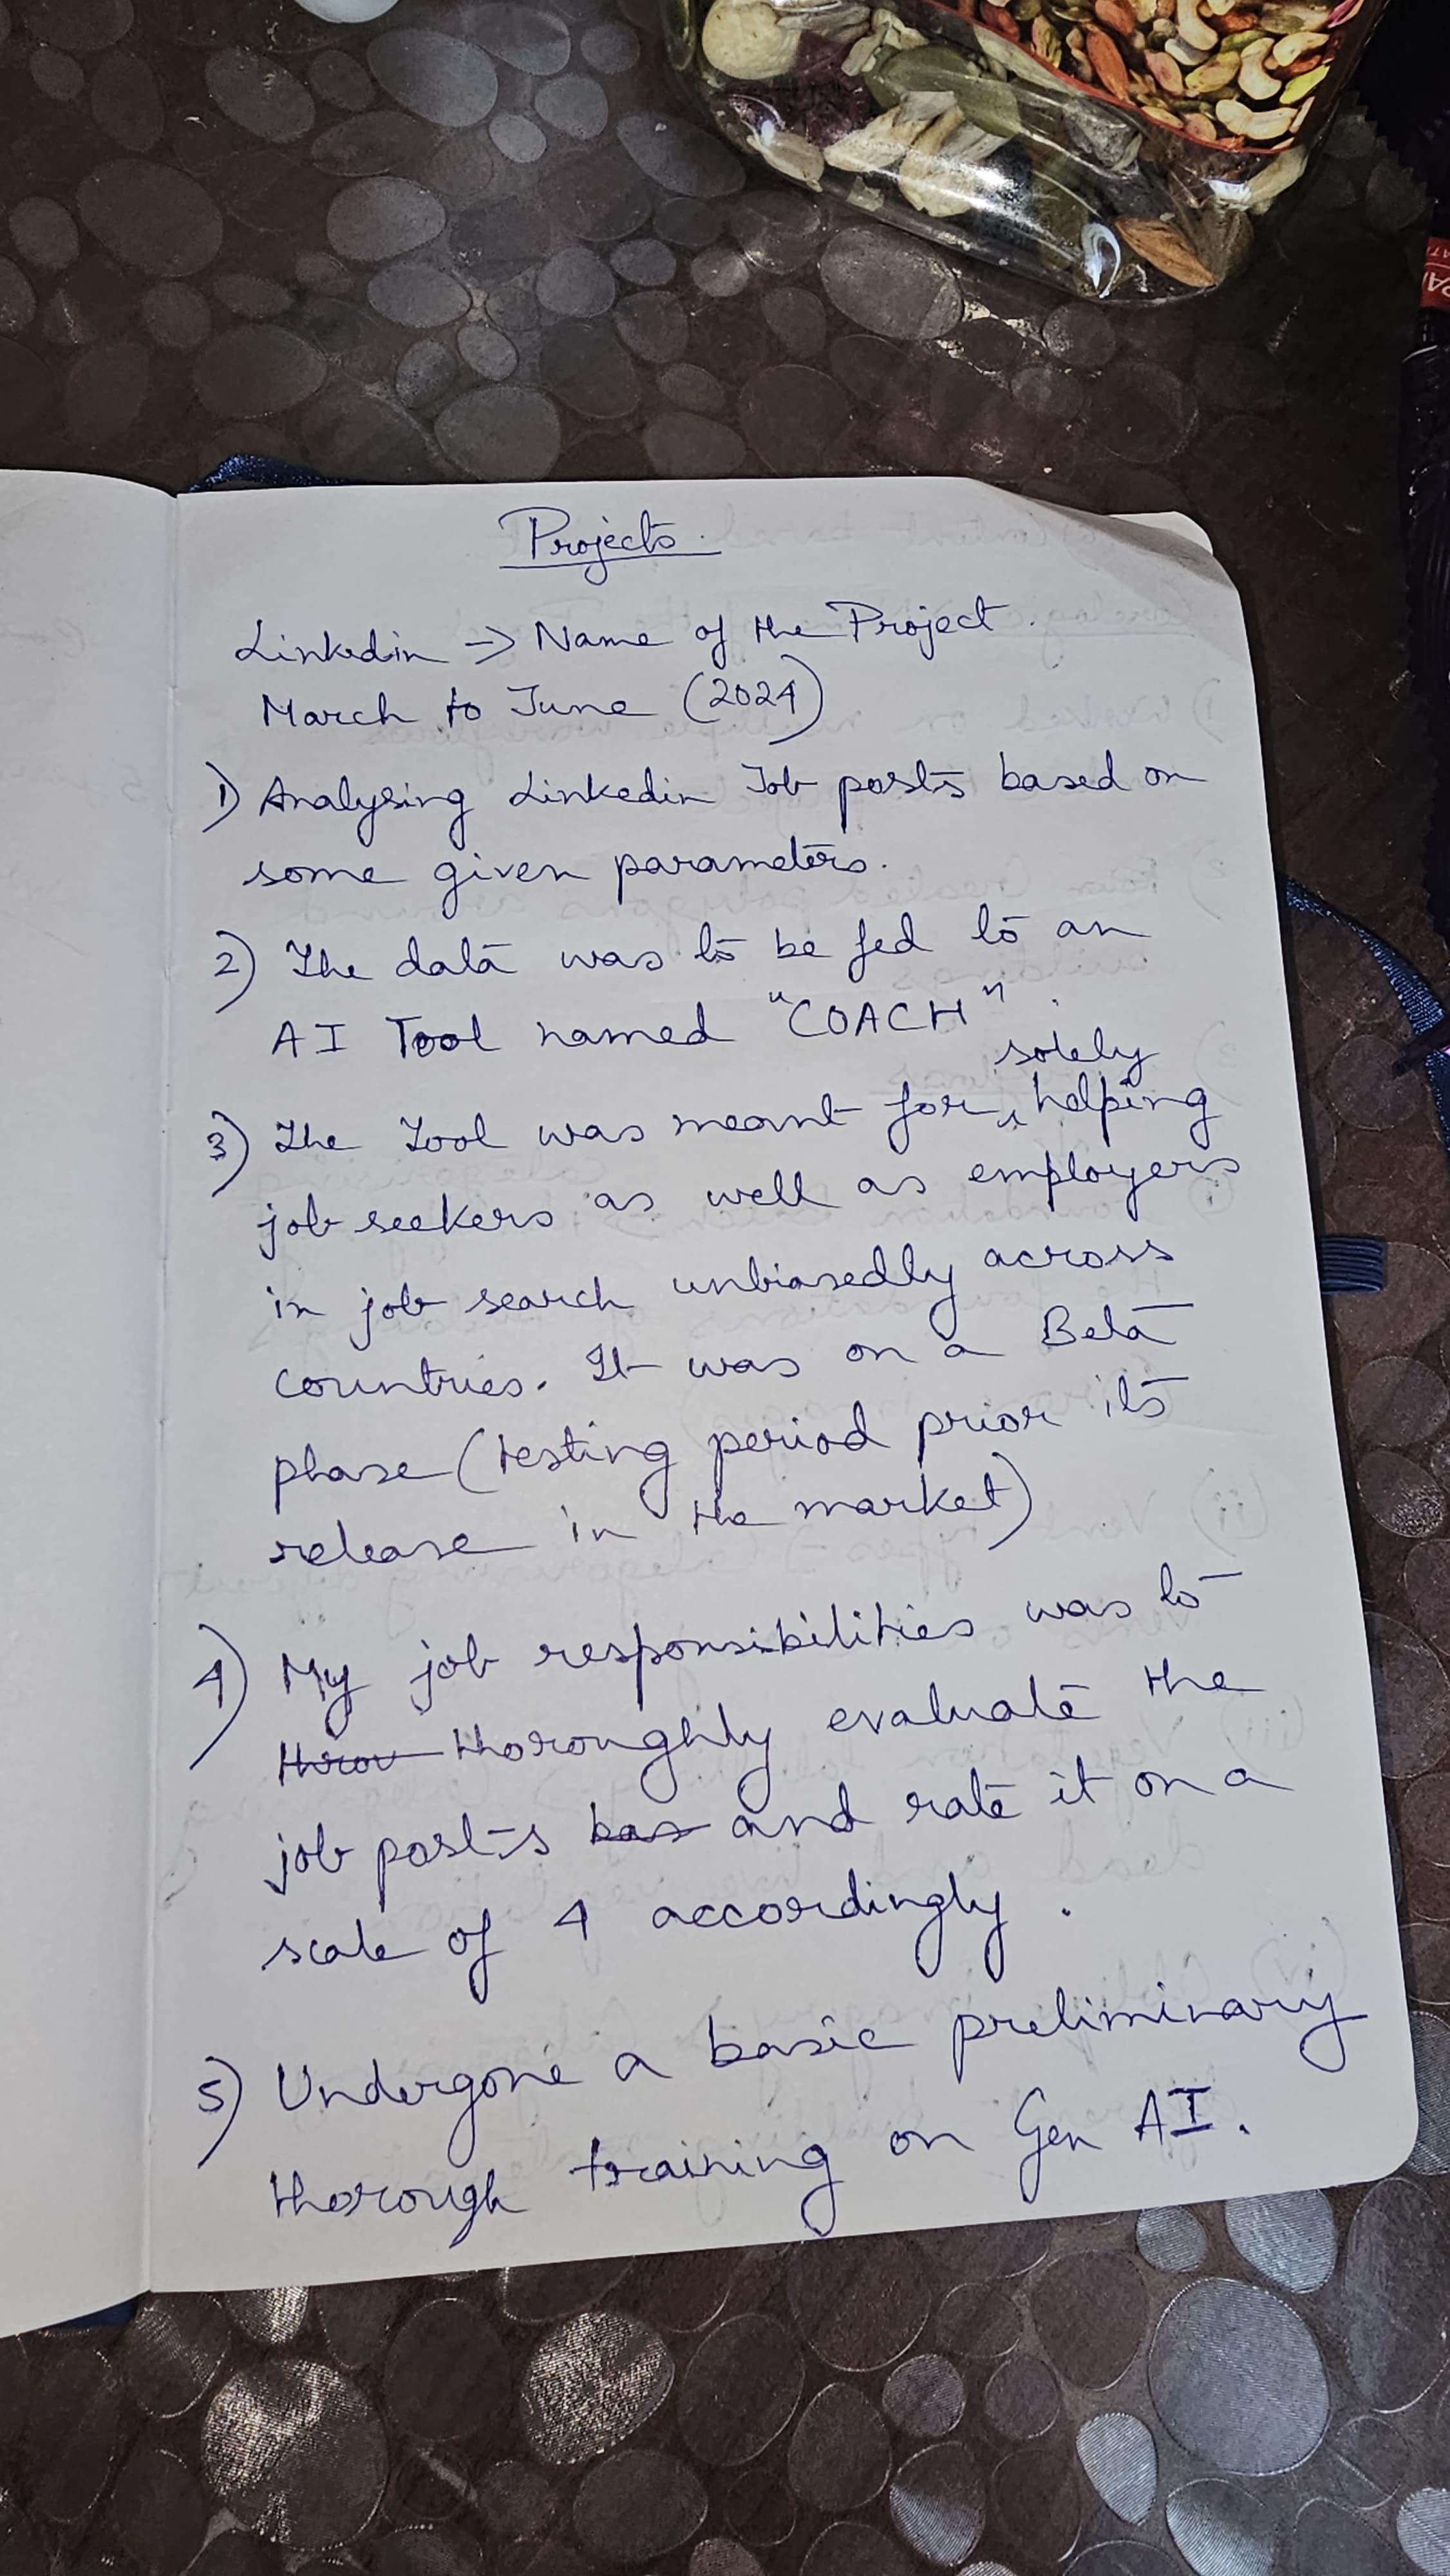 Projects.
Linkedin -> Name of the Project.
March to June (2024)
1) Analysing Linkedin Job posts based on
some given parameters.
2) The data was to be fed to an
AI Tool named "COACH".
solely
3) The Tool was meant for ^ helping
job seekers as well as employers
in job search unbiasedly across
countries. It was on a Beta
phase (testing period prior its
release in the market)
4) My job responsibilities was to
throu thoroughly evaluate the
job posts bas and rate it on a
scale of 4 accordingly.
5) Undergone a basic preliminary
thorough training on Gen AI.